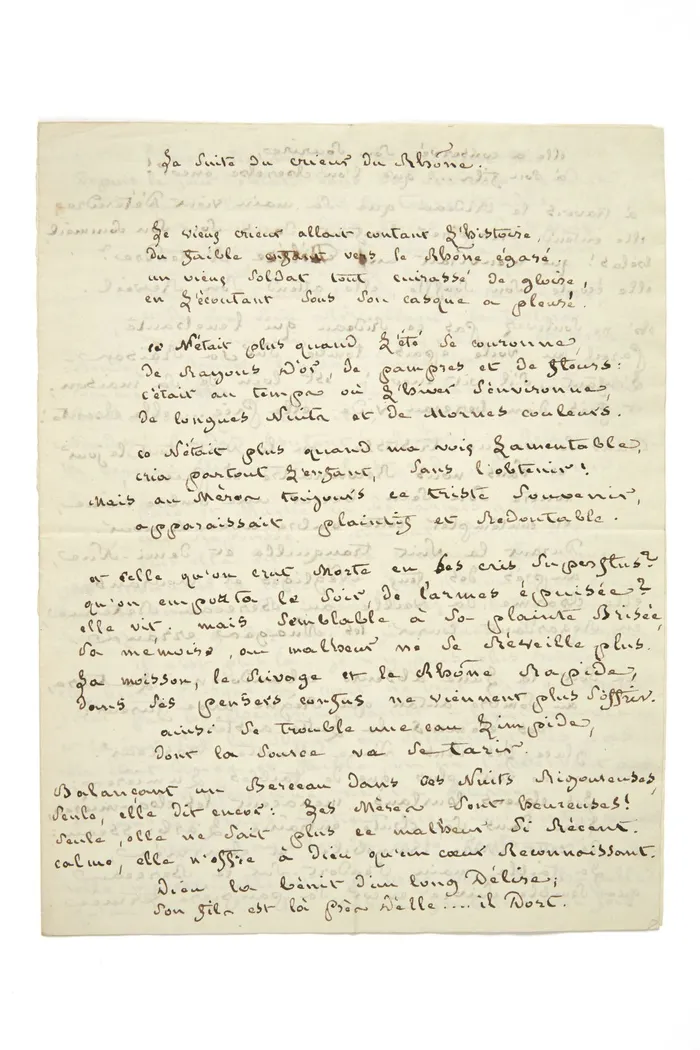 La Suite du crieur du Rhône.
Le vieux crieur allait contant L'histoire,
du faible enfant vers le Rhône égaré.
un vieux Soldat tout cuirassé de gloire,
en L'écoutant Sous Son casque a pleuré.
ce N'était plus quand L'été Se couronne,
de Rayons D'or, de pampres et de fleurs:
c'était au temps où L'hiver S'environne,
de longues Nuits et de Mornes couleurs.
ce N'était plus quand ma voix Lamentable,
cria partout L'enfant, Sans l'obtenir!
Mais au Mères toujours ce triste Souvenir,
apparaissait plaintif et Redoutable.
et celle qu'on crut Morte en Ses cris Superflus?
qu'on emporta le Soir, de l'armes épuisée?
elle vit. mais Semblable à Sa plainte Brisée,
Sa memoire, au malheur ne Se Réveille plus.
La moisson, le Rivage et le Rhône Rapide,
Dans Ses pensers confus ne viennent plus S'offrir.
ainsi Se trouble une eau Limpide,
dont la Source va Se tarir.
Balançant un Berceau Dans Ces Nuits Rigoureuses,
Seule, elle dit encor: Les Mères Sont heureuses!
Seule, elle ne Sait plus ce malheur Si Récent.
calme, elle n'offre à Dieu qu'un cœur Reconnaissant.
Dieu la bénit d'un long Délire;
Son fils est là près D'elle.... il Dort.